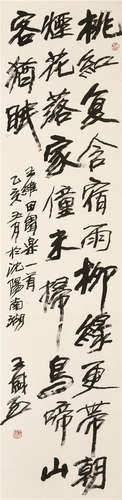 桃紅复含宿雨柳綠更帶朝
煙花落家僮未掃鳥啼山
客猶眠
王維田園樂一首
乙亥五月於沈陽南湖
王